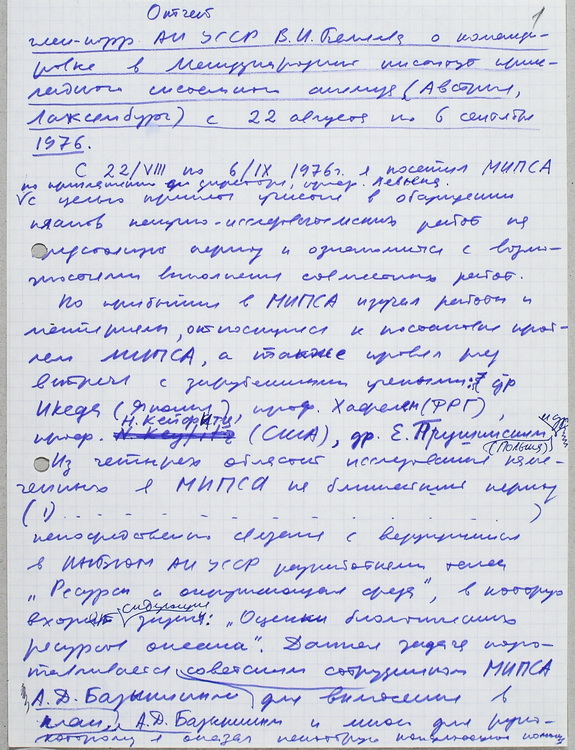 Отчет
1
член-корр АН УССР В.И. Беляева о команди-
ровке в Международный институт прик-
ладного системного анализа (Австрия,
Лаксенбург) с 22 августа по 6 сентября
1976.
С 22/VIII по 6/IX 1976г. я посетил МИПСА
по приглашению директора, проф. Левьена,
с целью принять участие в обсуждении
планов научно-исследовательских работ на
предстоящий период и ознакомится с возмо-
жностями выполнения совместных работ.
По прибытии в МИПСА изучал работы и
материалы, относящиеся к постановке проб-
лем МИПСА, а также провел ряд
встреч с зарубежными учеными: др
Икеда (Япония), проф. Хафелен (ФРГ),
Н. Кейфитц,
проф. (США), др. Е. Пручинским, и др.
(Польша)
Из четырех областей исследования наме-
ченных в МИПСА на ближайший период
(1) )
непосредственно связана с ведущимися
в АН УССР разработками тема
„Ресурсы и окружающая среда", в которую
входит следующая задача: „Оценки биологических
ресурсов океана". Данная задача подго-
тавливается советским сотрудником МИПСА
А.Д. Базыкиным для внесения в
план, А.Д. Базыкиным и мною для
которому я оказал некоторую помощь